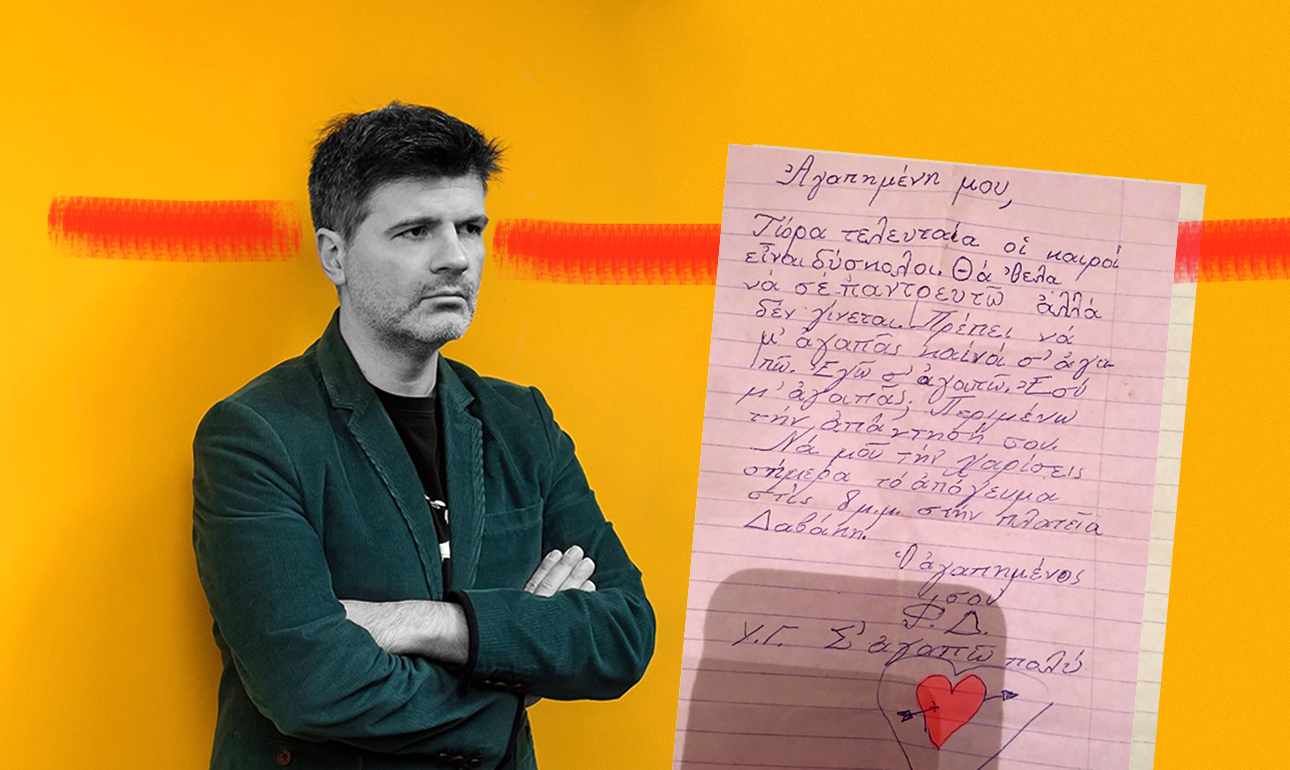 Ἀγαπημένη μου,
Τώρα τελευταία οἱ καιροί
εἶναι δύσκολοι. Θά 'θελα
νά σέ παντρευτῶ ἀλλά
δέν γίνεται. Πρέπει νά
μ' ἀγαπᾶς καί νά σ' ἀγα-
πῶ. Ἐγώ σ' ἀγαπῶ. Ἐσύ
μ' ἀγαπᾶς; Περιμένω
τήν ἀπάντησή σου.
Νά μοῦ τήν χαρίσεις
σήμερα τό ἀπόγευμα
στίς 8 μ.μ. στήν πλατεῖα
Δαβάκη.
Ὁ ἀγαπημένος
σου
Φ. Δ.
Υ.Γ. Σ' ἀγαπῶ πολύ